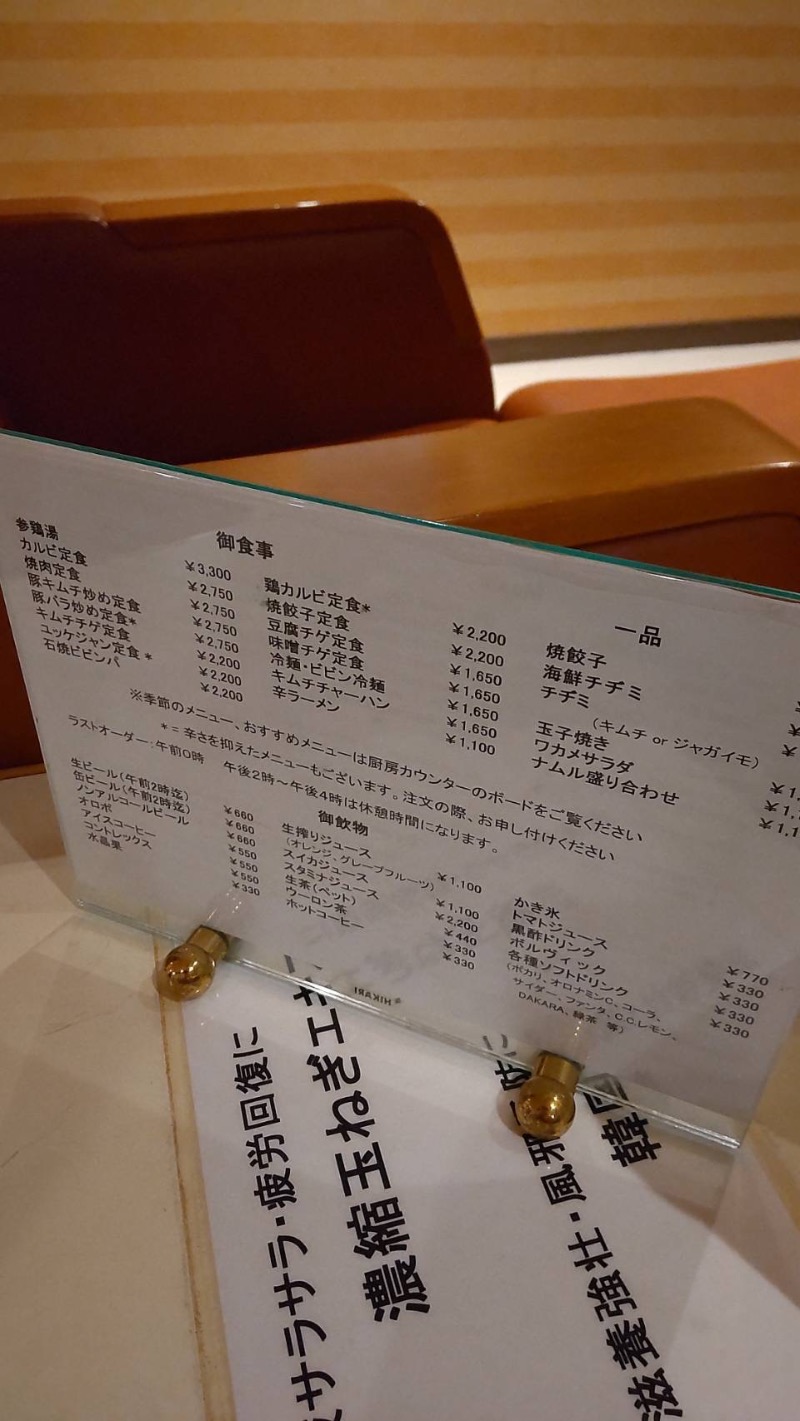 御食事
参鶏湯 ¥3,300
カルビ定食 ¥2,750
焼肉定食 ¥2,750
豚キムチ炒め定食 ¥2,750
豚バラ炒め定食* ¥2,750
キムチチゲ定食 ¥2,200
ユッケジャン定食 * ¥2,200
石焼ビビンパ ¥2,200
鶏カルビ定食* ¥2,200
焼餃子定食 ¥2,200
豆腐チゲ定食 ¥1,650
味噌チゲ定食 ¥1,650
冷麺・ビビン冷麺 ¥1,650
キムチチャーハン ¥1,650
辛ラーメン ¥1,100
一品
焼餃子
海鮮チヂミ
チヂミ
(キムチ or ジャガイモ)
玉子焼き
ワカメサラダ
ナムル盛り合わせ
※季節のメニュー、おすすめメニューは厨房カウンターのボードをご覧ください
*=辛さを抑えたメニューもございます。注文の際、お申し付けください
ラストオーダー:午前0時 午後2時~午後4時は休憩時間になります。
御飲物
生ビール(午前2時迄) ¥660
缶ビール(午前2時迄) ¥660
ノンアルコールビール ¥660
オロポ ¥550
アイスコーヒー ¥550
コントレックス ¥550
水晶果 ¥330
生搾りジュース ¥1,100
(オレンジ、グレープフルーツ)
スイカジュース ¥1,100
スタミナジュース ¥2,200
生茶(ペット) ¥440
ウーロン茶 ¥330
ホットコーヒー ¥330
かき氷 ¥770
トマトジュース ¥330
黒酢ドリンク ¥330
ボルヴィック ¥330
各種ソフトドリンク ¥330
(ポカリ、オロナミンC、コーラ、
サイダー、ファンタ、C.C.レモン、
DAKARA、緑茶 等)
HIKARI
サラサラ・疲労回復に
濃縮玉ねぎエキ
滋養強壮・風邪
韓国